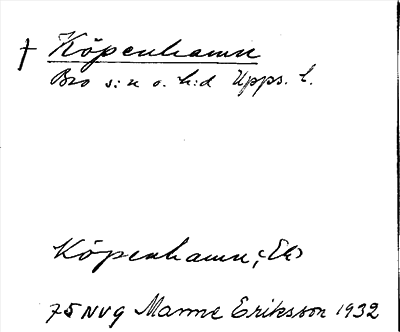 † Köpenhamn
Bro s:n o. h:d Upps. l.
Köpenhamn, (Ek)
75 NV9 Manne Eriksson 1932